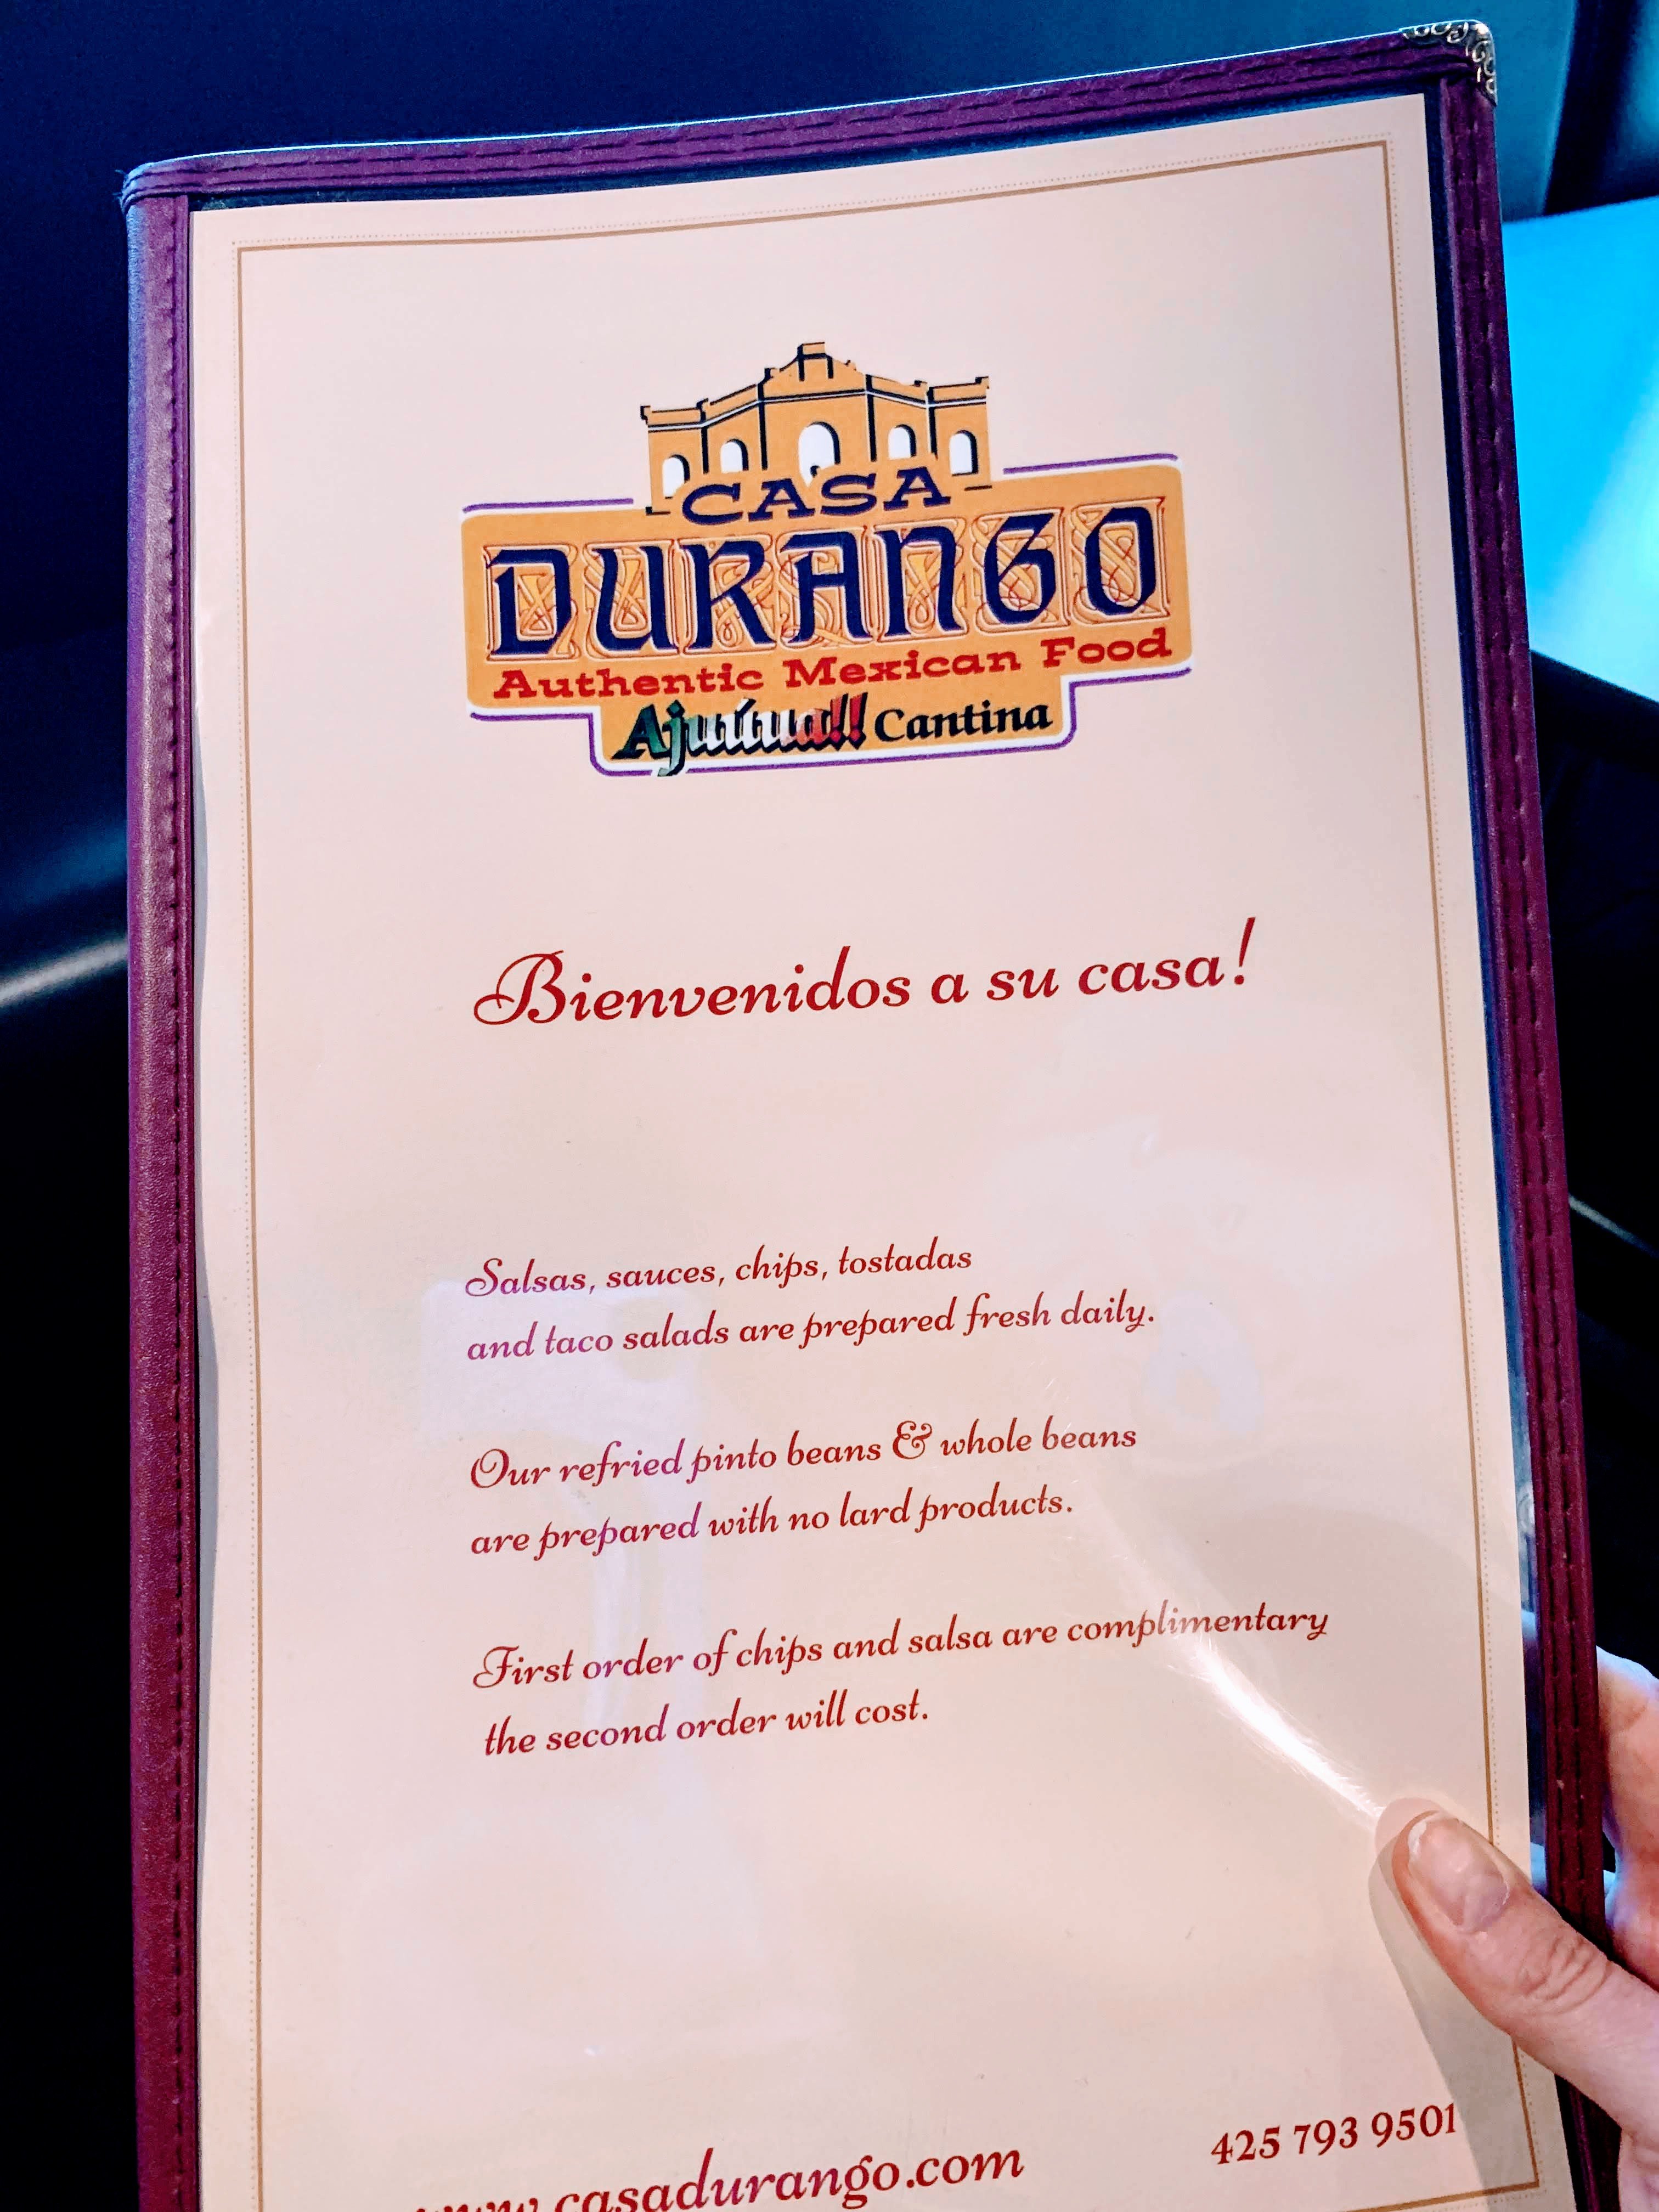 CASA
DURANGO
Authentic Mexican Food
Ajuúua!! Cantina
Bienvenidos a su casa!
Salsas, sauces, chips, tostadas
and taco salads are prepared fresh daily.
Our refried pinto beans & whole beans
are prepared with no lard products.
First order of chips and salsa are complimentary
the second order will cost.
425 793 9501
www.casadurango.com